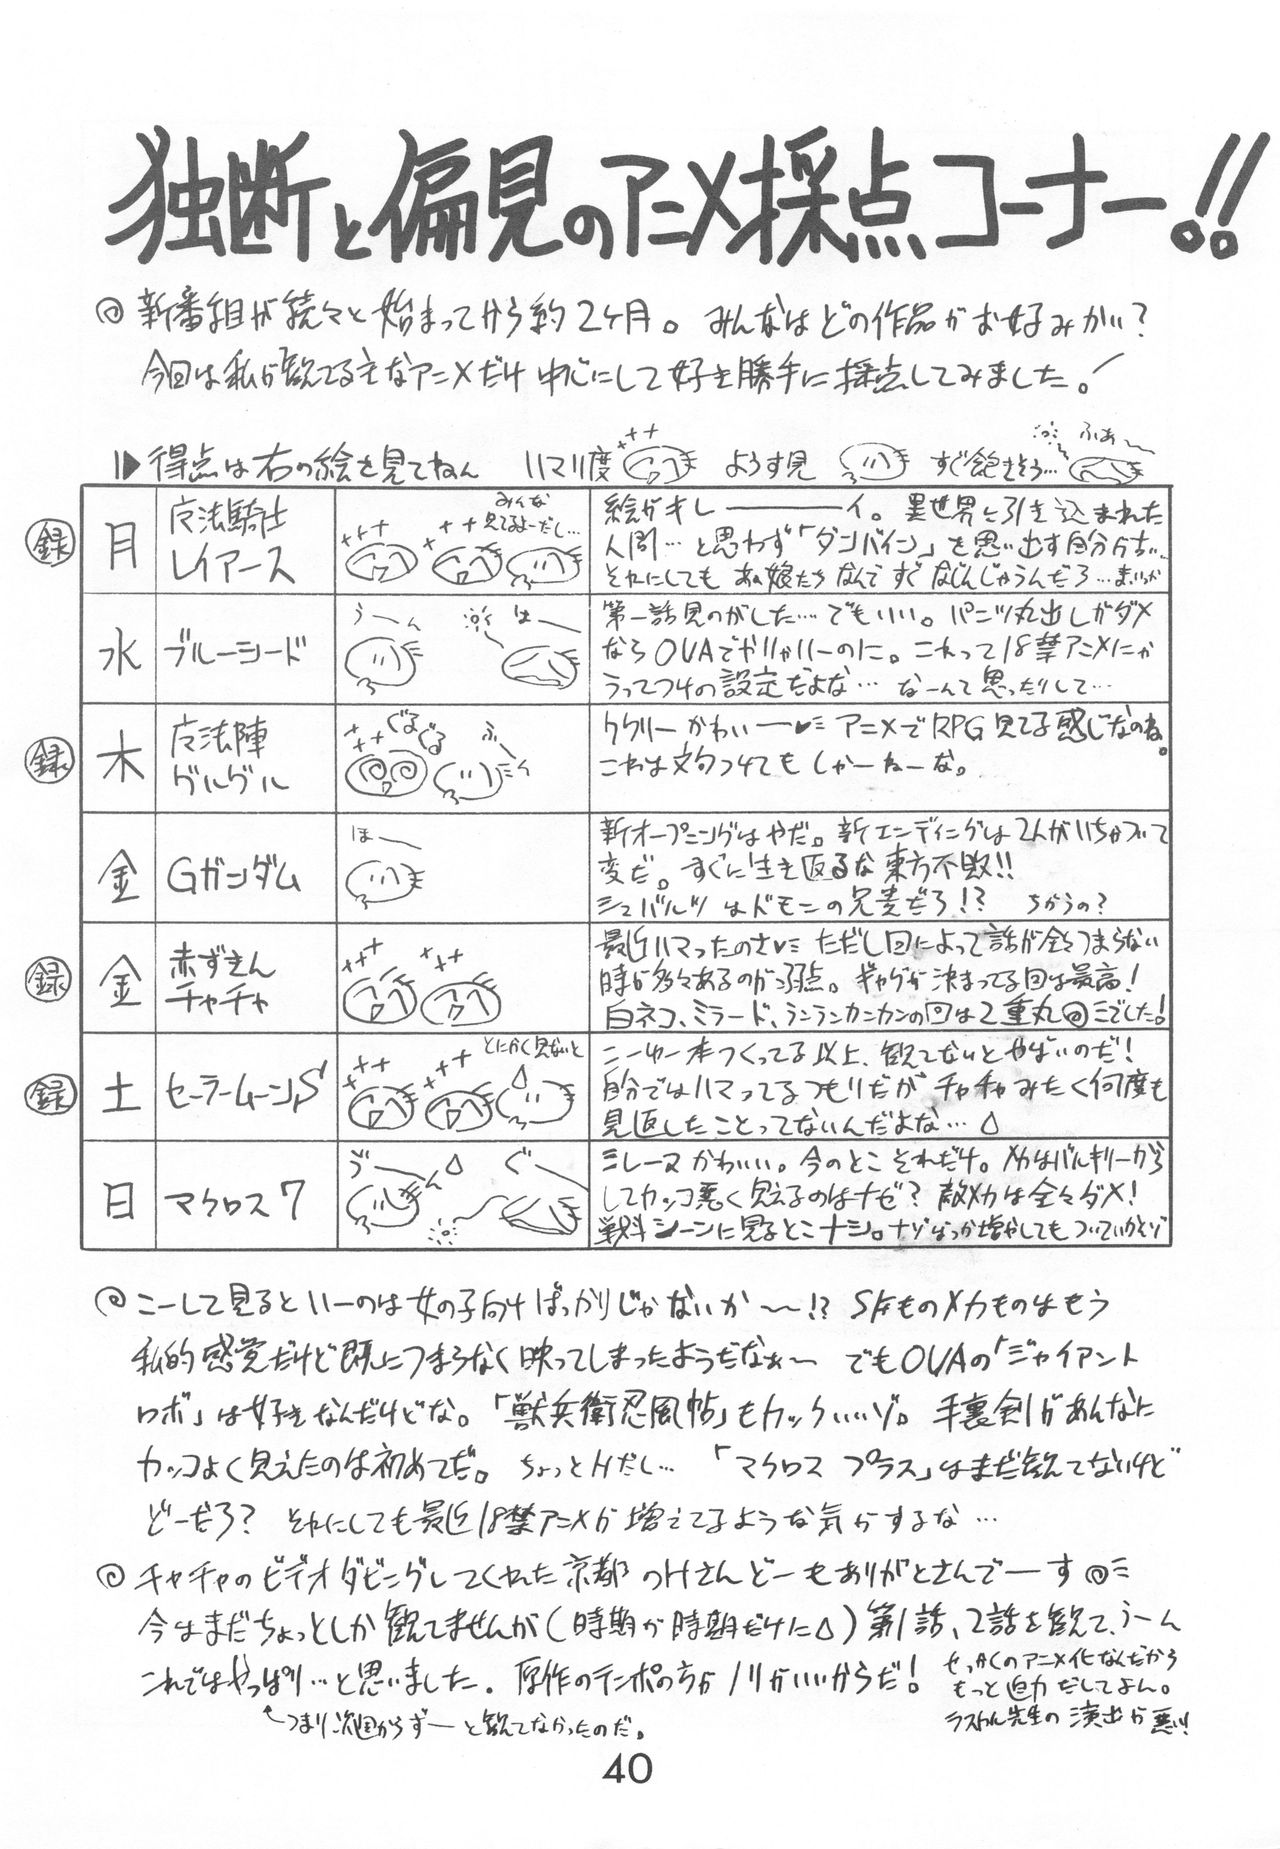 独断と偏見のアニメ採点コーナー!!
◎ 新番組が続々と始まってから約2ヶ月。みんなはどの作品がお好みかい?
今回は私が観てる主なアニメだけ中心にして好き勝手に採点してみました!
▶得点は右の絵を見てねん ハマリ度 ようす見 すぐ飽きそう… ふぁ〜
録 月 魔法騎士レイアース
みんな見てるよーだし…
絵がキレ———イ。異世界に引き込まれた
人間…と思わず「ダンバイン」を思い出す自分が古い…
それにしてもあの娘たちなんですぐなじんじゃうんだろ…まいっか
水 ブルーシード
う〜ん はー
第一話見のがした…でもいい。パンツ丸出しがダメ
ならOVAでやりゃいーのに。これって18禁アニメにか
うってつけの設定だよな…なーんて思ったりして…
録 木 魔法陣グルグル
ぐるぐる ふ〜ん
ククリーかわいー♥ アニメでRPG見てる感じなのね。
これは文句つけてもしゃーねーな。
金 Gガンダム
ほー
新オープニングはやだ。新エンディングは2人がいちゃついて
変だ。すぐに生き返るな東方不敗!!
シュバルツはドモンの兄貴だろ!? ちがうの?
録 金 赤ずきんチャチャ
最近ハマったのさ♥ ただし回によって話が全々つまらない
時が多々あるのが弱点。ギャグが決まってる回は最高!
白ネコ、ミラード、ランランカンカンの回は2重丸◎でした!
録 土 セーラームーンS
とにかく見ないと
こーゆー本つくってる以上、観てないとやばいのだ!
自分ではハマってるつもりだがチャチャみたく何度も
見返したことってないんだよな…
日 マクロス7
う〜 ぐー
ミレーヌかわいい。今のとこそれだけ。メカはバルキリーがどう
してカッコ悪く見えるのはナゼ? 敵メカは全々ダメ!
戦闘シーンに見るとこナシ。ナゾばっか増やしてもついていかんぞ
◎ こーして見るといーのは女の子向けばっかりじゃないか〜!? SFものメカものはもう
私的感覚だけど既につまらなく映ってしまったようだなぁ〜 でもOVAの「ジャイアント
ロボ」は好きなんだけどな。「獣兵衛忍風帖」もカックいいゾ。手裏剣があんなに
カッコよく見えたのは初めてだ。ちょっとHだし… 「マクロス プラス」はまだ観てないけど
どーだろ? それにしても最近18禁アニメが増えてるような気がするな…
◎ チャチャのビデオダビングしてくれた京都のHさんどーもありがとさんでーす◎
今はまだちょっとしか観てませんが(時期が時期だけに)第1話、2話を観て、うーん
これではやっぱり…と思いました。原作のテンポの方がノリがいいからだ!
せっかくのアニメ化なんだから
もっと迫力だしてよん。
演出が悪い!
←つまり次回からずーと観てなかったのだ。
40